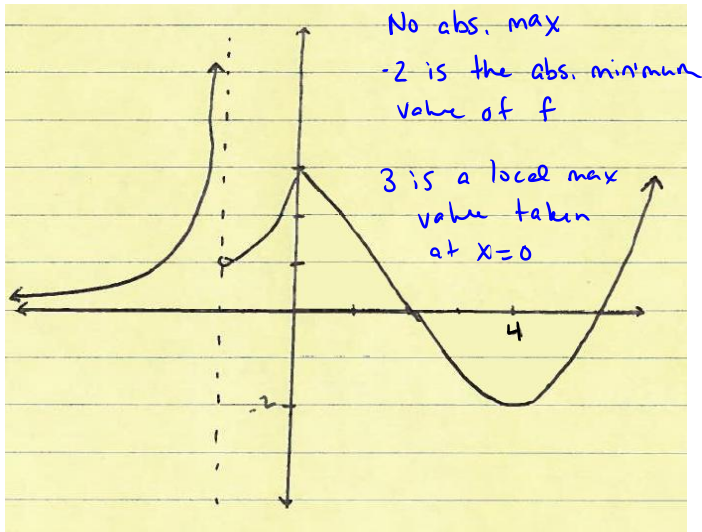 No abs. max
-2 is the abs. minimum
value of f
3 is a local max
value taken
at x=0
4
-2